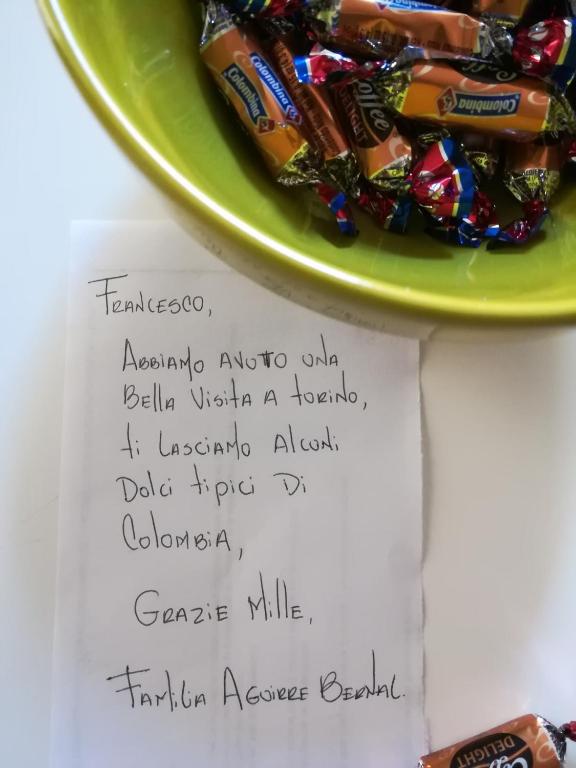 Colombina
Colombina
Coffee
DELIGHT
Colombina
FRANCESCO,
ABBIAMO AVUTO UNA
BELLA VISITA A TORINO,
TI LASCIAMO ALCUNI
DOLCI TIPICI DI
COLOMBIA,
GRAZIE MILLE,
FAMILIA AGUIRRE BERNAL.
Coffee
DELIGHT